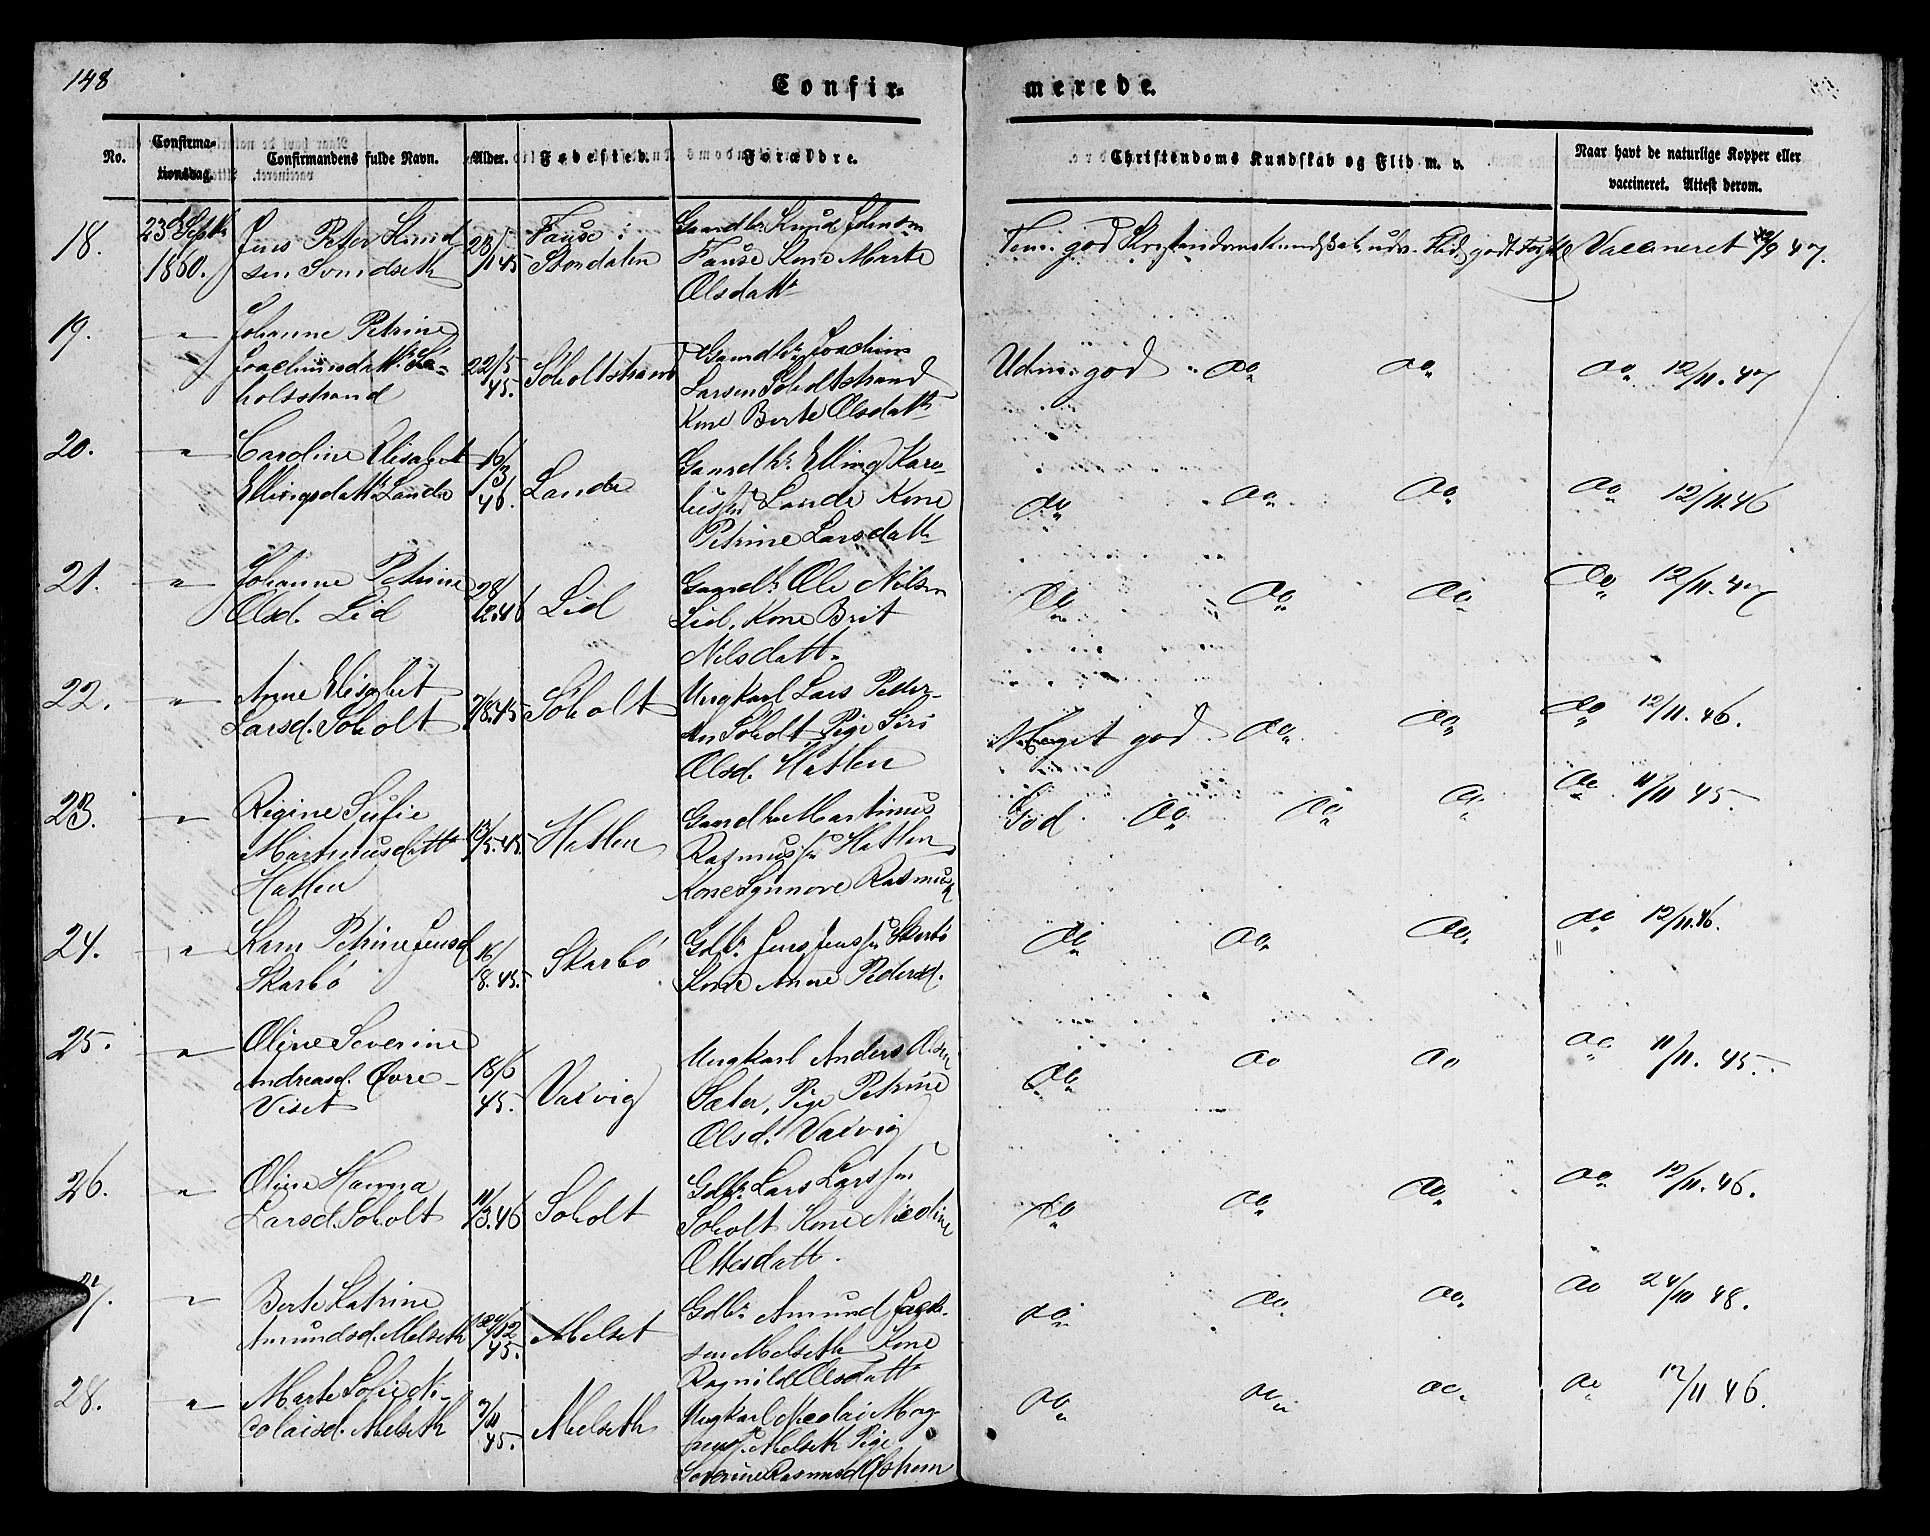 148
Confir-
merede.
No.
Confirma-
tionsdag.
Confirmandens fulde Navn.
Alder.
Fødested.
Forældre.
Christendoms Kundskab og Flid m. v.
Naar havt de naturlige Kopper eller
vaccineret. Attest derom.
18.
23 Septbr
1860.
Jens Peter Knud
sen
23/
11 45
Fause i
Stordalen
Gaardbr. Knud Johnsen
Fause Kone Marte
Olsdattr
god Kristendomskundskab udv. Flid
Vaccineret
47.
19.
"
Johanne Petrine
Joachimsdattr Sø-
holtstrand
22/5
45.
Søholtstrand
Gaardbr. Joachim
Larsen Søholtstrand
Kone Berte Olsdattr
Udm: god " do
do
do 12/11. 47
20.
"
Caroline Elisabet
Ellingsdattr Lande
16/
3
46.
Lande
Gaardbr. Elling Kare-
Lande Kone
Petrine Larsdattr
do do do
do 12/11. 46
21.
"
Johanne Petrine
Olsd. Lid
28/
12.46
Lid
Gaardbr. Ole Nilsen
Lid, Kone Brit
Nilsdattr
do do do
do 12/11. 47
22.
"
Anne Elisabet
Larsd. Søholt
7/8.45
Søholt
Ungkarl Lars Peder-
sen Søholt Pige Siri
Olsd. Hatlen
Meget god do
do
do 12/11. 46.
23.
"
Regine Sufie
Martinusdattr
Hatlen
13/5.45.
Hatlen
Gaardbr Martinus
Rasmussen Hatlen
Kone Synnove Rasmusd
God do do do
do 11/11 45.
24.
"
Karn Petrine Jensd
Skarbö
16/
8.45.
Skarbö
Gdbr. Jens Jenssen Skarbö
Kone Anne Pedersd.
do do do
do 12/11. 46.
25.
"
Oline Severine
Andreasd. Øvre-
Viset
18/6
45.
Vaxvig
Ungkarl Anders Olsen
Sæter, Pige Petrine
Olsd. Vaxvig
do do do
do 11/11. 45.
26.
"
Oline Hanna
Larsd. Søholt
11/3.46
Søholt
Gdbr. Lars Larssen
Søholt Kone Nicoline
Ottesdattr.
do do do
do 12/11. 46.
27.
"
Berte Katrine
Amundsd. Melseth
12
45.
Melset
Gdbr. Amund
sen Melseth Kone
Ragnilde Olsdattr
do do do
do 24/10 48.
28.
"
Marte Sofie Ni-
colaisd. Melseth
7/11
45.
Melseth
Ungkarl Nicolai Mog
Melseth Pige
Severine Rasmusd
do do do
do 12/11 46.